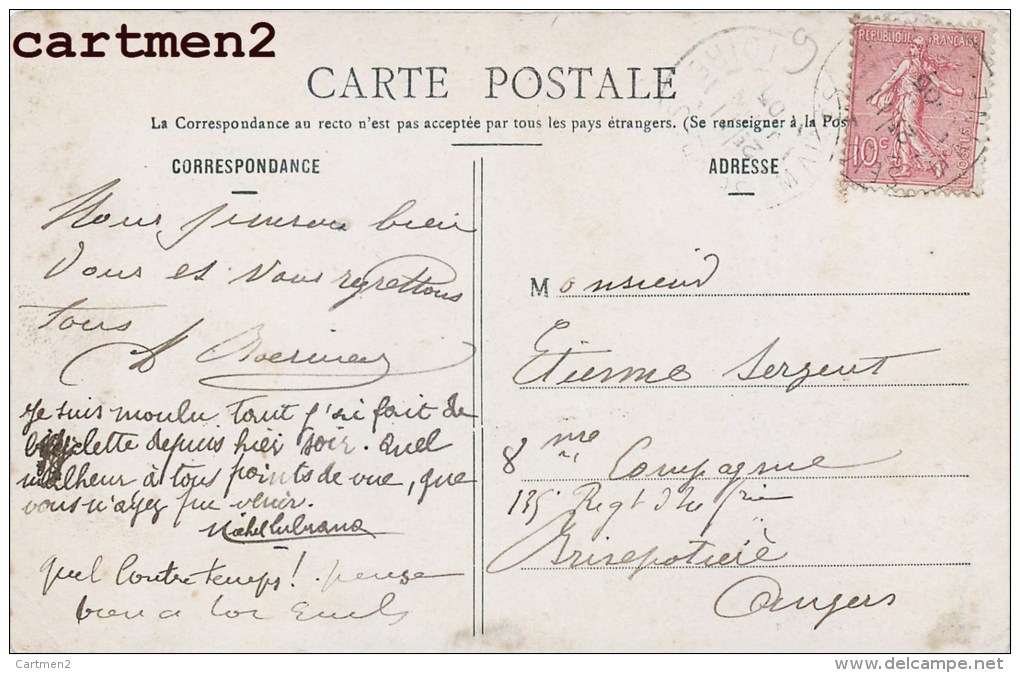 cartmen2
RÉPUBLIQUE FRANÇAISE
10c
POSTES
CARTE POSTALE
La Correspondance au recto n'est pas acceptée par tous les pays étrangers. (Se renseigner à la Pos
CORRESPONDANCE
Nous pensons bien
Vous et Vous regrettons
tous
Je suis moulu tant j'ai fait de
bicyclette depuis hier soir. Quel
malheur à tous points de vue, que
vous n'ayez pu venir.
Quel Contretemps! pense
bien a toi
ADRESSE
Monsieur
Etienne Sergent
8me Compagnie
135e Regt
Angers
Cartmen2
www.delcampe.net